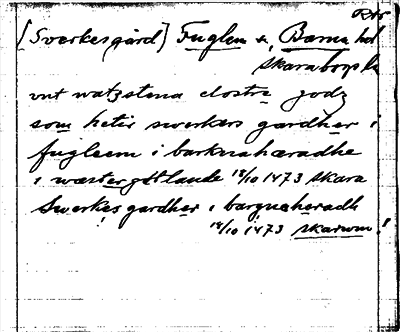 Rts
[Sverkesgård] Fuglen s., Barne hd
Skaraborgs l.
vnt watzstena closters godz
som hetir swerkers gardher i
fugleem i barknahæradhe
i wæstergøtlande 18/10 1473 Skara
Swerkes gardher i bargnaheradh
18/10 1473 skarwm!